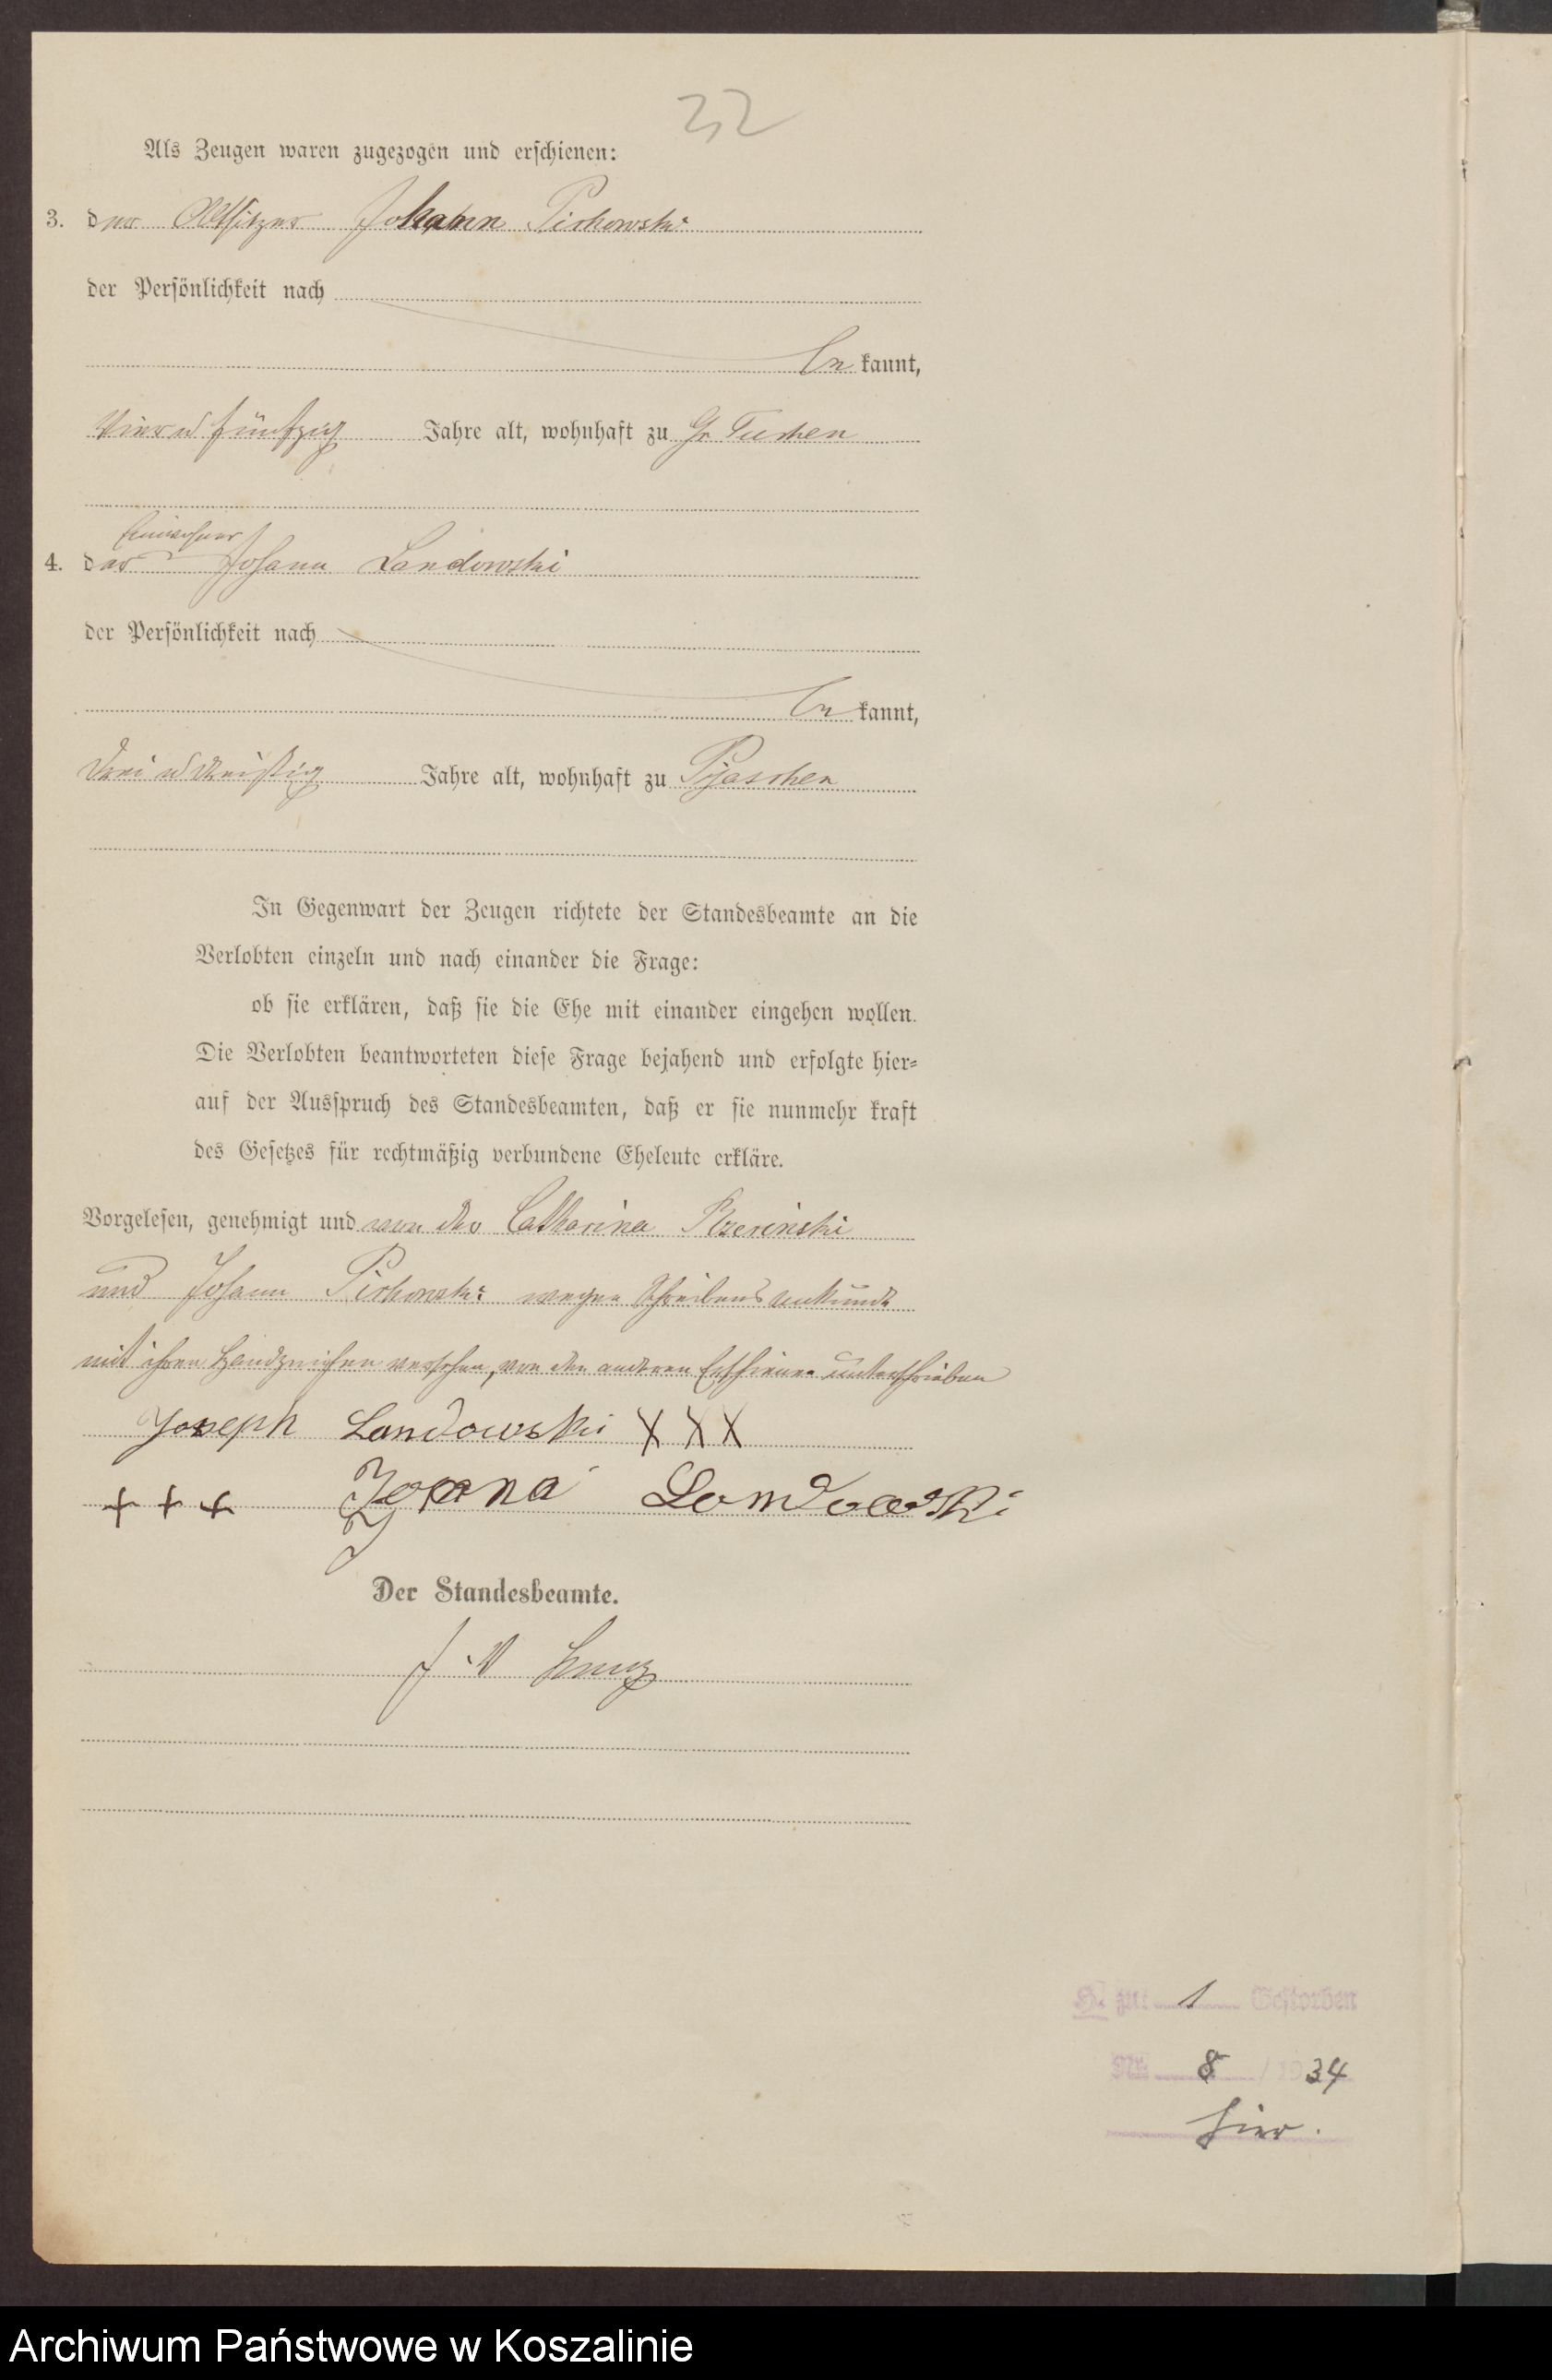 32
Als Zeugen waren zugezogen und erschienen:
3. der Altsitzer Johann Pichowski
der Persönlichkeit nach
be kannt,
Vier u fünfzig Jahre alt, wohnhaft zu Gr Tuchen
Einwohner
4. der Johann Landowski
der Persönlichkeit nach
be kannt,
drei u dreißig Jahre alt, wohnhaft zu Pyaschen
In Gegenwart der Zeugen richtete der Standesbeamte an die
Verlobten einzeln und nach einander die Frage:
ob sie erklären, daß sie die Ehe mit einander eingehen wollen.
Die Verlobten beantworteten diese Frage bejahend und erfolgte hier=
auf der Ausspruch des Standesbeamten, daß er sie nunmehr kraft
des Gesetzes für rechtmäßig verbundene Eheleute erkläre.
Vorgelesen, genehmigt und von der Catharina
und Johann Pichowski wegen Schreibensunkunde
mit ihren Handzeichen versehen, von den anderen Erschienenen unterschrieben
Joseph Landowski XXX
+++ Landowski
Der Standesbeamte.
J. V.
H. zu: 1 Gestorben
Nr. 8 / 1934
hier.
Archiwum Państwowe w Koszalinie